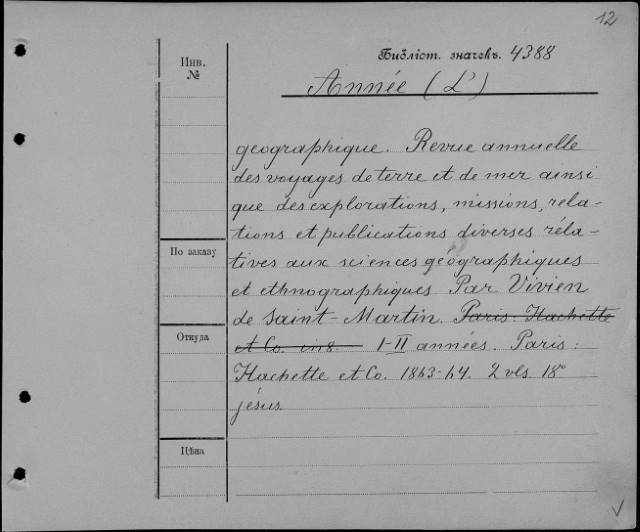 12
Библіот. значекъ. 4388
Инв.
№
Année (L')
géographique. Revue annuelle
des voyages de terre et de mer ainsi
que des explorations, missions, rela-
tions et publications diverses réla-
tives aux sciences géographiques
По заказу
et ethnographiques Par Vivien
de Saint-Martin. Paris: Hachette
Откуда
et Co. in 8. I-II années. Paris:
Hachette et Co. 1863-64. 2 vls 18°
jésus.
Цѣна